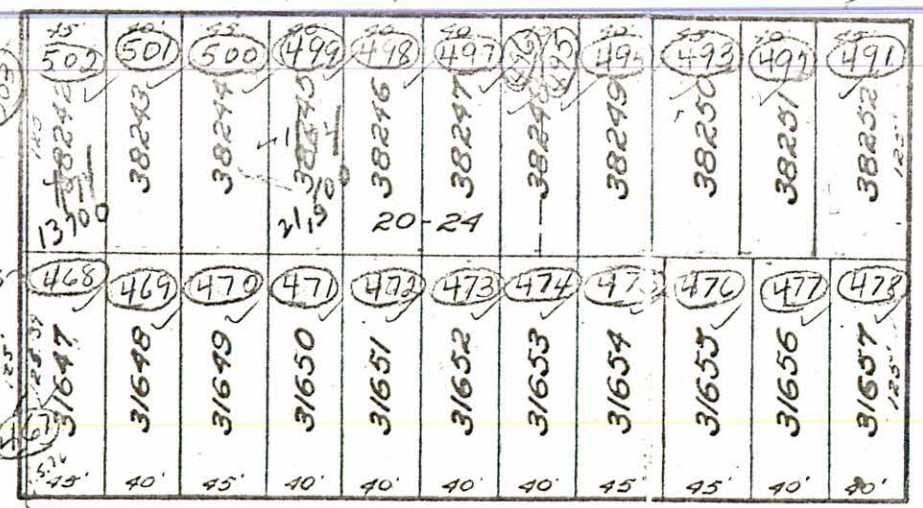 45' 40' 45' 40' 40' 40' 40' 45' 45' 40' 40'
502 501 500 499 498 497 496 495 494 493 492 491
38242 38243 38244 38245 38246 38247 38248 38249 38250 38251 38252
125' 125'
13700 21,900 20-24
468 469 470 471 472 473 474 475 476 477 478
31647 31648 31649 31650 31651 31652 31653 31654 31655 31656 31657
125' 125.39 125'
467
5.76
45' 40' 45' 40' 40' 40' 40' 45' 45' 40' 40'